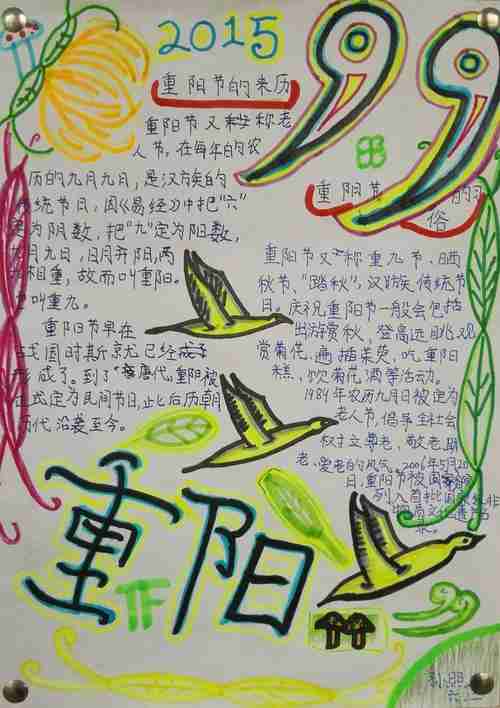 2015
99
重阳节的来历
重阳节又称老
人节,在每年的农
历的九月九日,是汉族的
传统节日,因《易经》中把“六”
定为阴数,把“九”定为阳数,
九月九日,日月并阳,两
九相重,故而叫重阳。
也叫重九。
重阳节早在
战国时期就已经
形成了。到了唐代,重阳被
正式定为民间节日,此后历朝
历代沿袭至今。
重阳节的习
俗
重阳节又称重九节、晒
秋节、“踏秋”,汉族传统节
日。庆祝重阳节一般会包括
出游赏秋、登高远眺、观
赏菊花、遍插茱萸、吃重阳
糕、饮菊花酒等活动。
1989年农历九月九日被定为
老人节,倡导全社会
树立尊老、敬老、助
老、爱老的风气。2006年5月20
日,重阳节被国
列入首批国家级非
物质文化遗产名
录。
重阳
TF